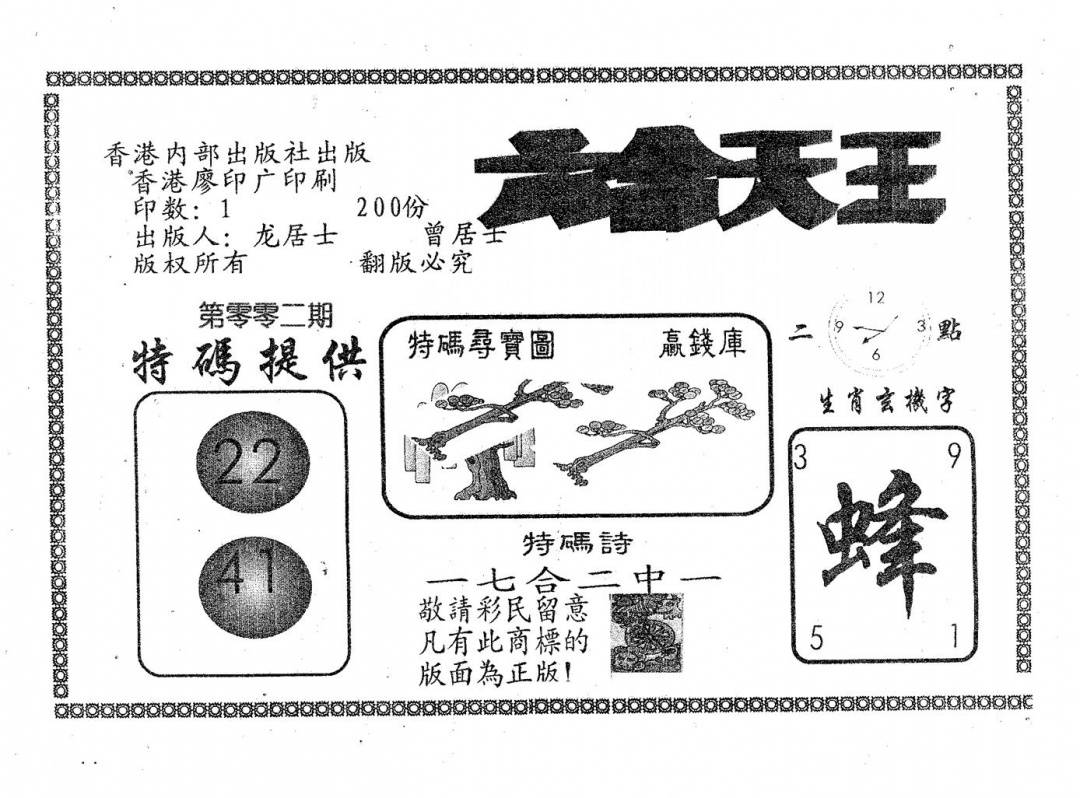 六合天王
香港内部出版社出版
香港廖印广印刷
印数：1 200份
出版人：龙居士 曾居士
版权所有 翻版必究
第零零二期
特碼提供
22
41
特碼尋寶圖 贏錢庫
二 點
12
9 3
6
生肖玄機字
3 9
蜂
5 1
特碼詩
一七合二中一
敬請彩民留意
凡有此商標的
版面為正版!